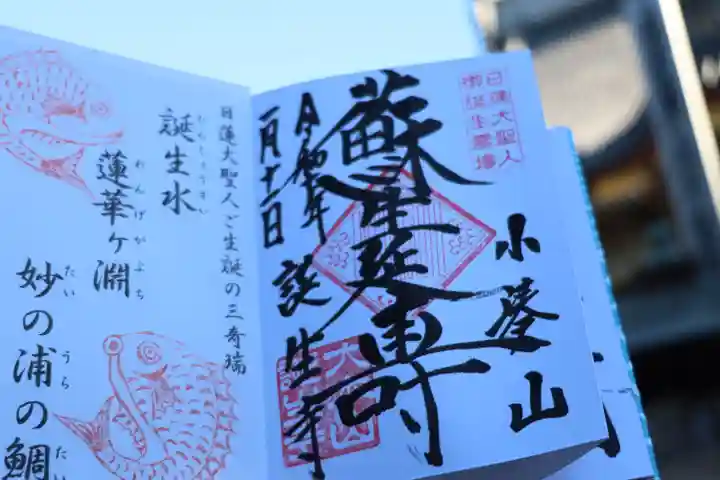 日蓮大聖人
御誕生霊場
小湊山
蘇生延寿
誕生寺
二月十一日
日蓮大聖人ご生誕の三奇瑞
誕生水
たんじょうすい
蓮華ヶ淵
れんげがふち
妙の浦の鯛
たいうらたい